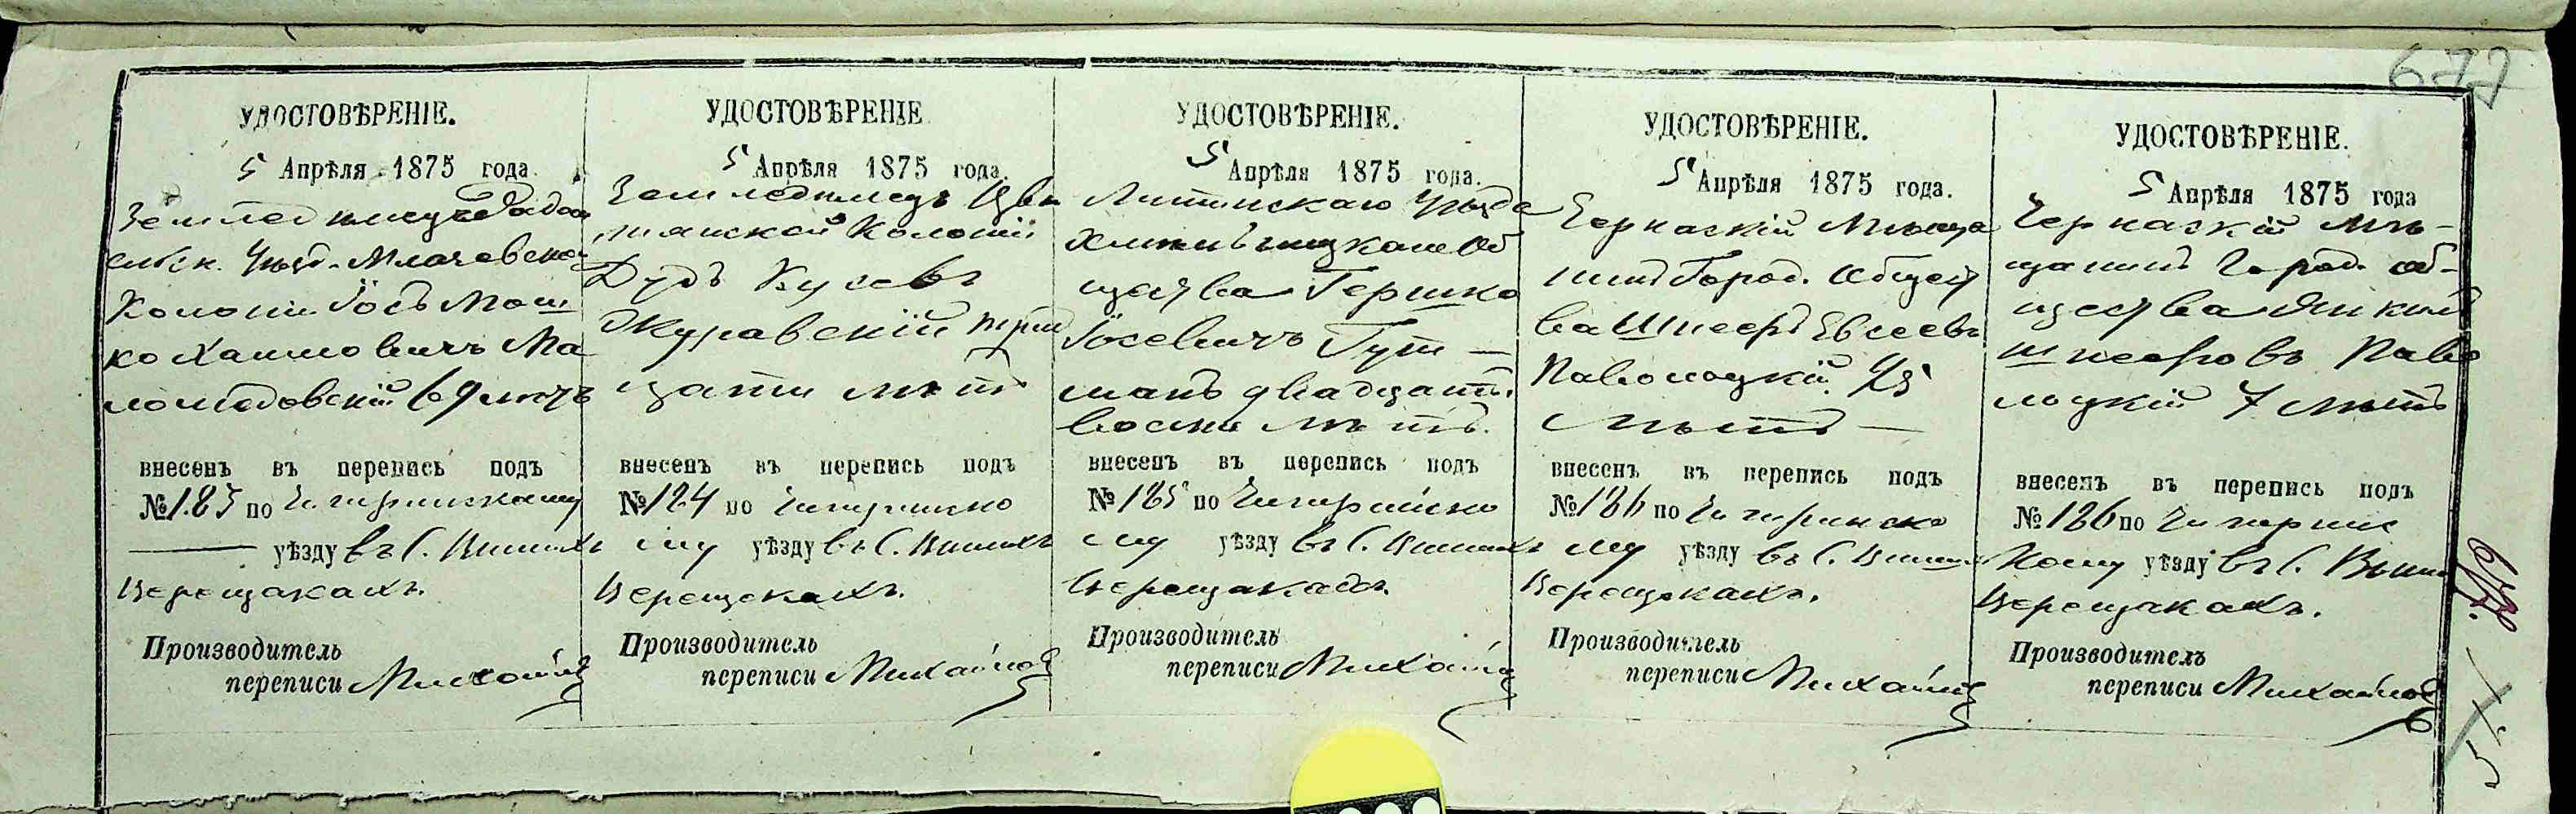 677
УДОСТОВѢРЕНІЕ.
5 Апрѣля 1875 года
Колоніи Іосъ Мош
ко Хаимовичъ Ма
69 лѣтъ
внесенъ въ перепись подъ
№ 183 по Чигиринскому
уѣзду въ С. Вишихъ
Верещакахъ.
Производитель
переписи Михайлов
УДОСТОВѢРЕНІЕ
5 Апрѣля 1875 года.
Земледѣлецъ Изра
Колоніи
Дудъ
Журавскій трид
цати лѣтъ
внесенъ въ перепись подъ
№ 184 по Чигиринско
му уѣзду въ С. Вишихъ
Верещакахъ.
Производитель
переписи Михайлов
УДОСТОВѢРЕНІЕ.
5 Апрѣля 1875 года.
Литинскаго Уѣзда
Об
щества Гершко
Іосевичъ Гут-
манъ двадцати
восьми лѣтъ.
внесенъ въ перепись подъ
№ 185 по Чигиринско
му уѣзду въ С. Вишихъ
Верещакахъ.
Производитель
переписи Михайлов
УДОСТОВѢРЕНІЕ.
5 Апрѣля 1875 года.
Черкаскій Мѣща
нинъ Город. Общест
ва Шнееръ Евсеевъ
Паволоцкій
лѣтъ —
внесенъ въ перепись подъ
№ 186 по Чигиринско
му уѣзду въ С. Вишихъ
Верещакахъ.
Производитель
переписи Михайлов
УДОСТОВѢРЕНІЕ.
5 Апрѣля 1875 года
Черкаскій мѣ-
щанинъ Город. об-
щества Янкель
Шнееровъ Паво
лоцкій 7 лѣтъ
внесенъ въ перепись подъ
№ 186 по Чигиринс
кому уѣзду въ С. Вишихъ
Верещакахъ.
Производитель
переписи Михайлов
677.